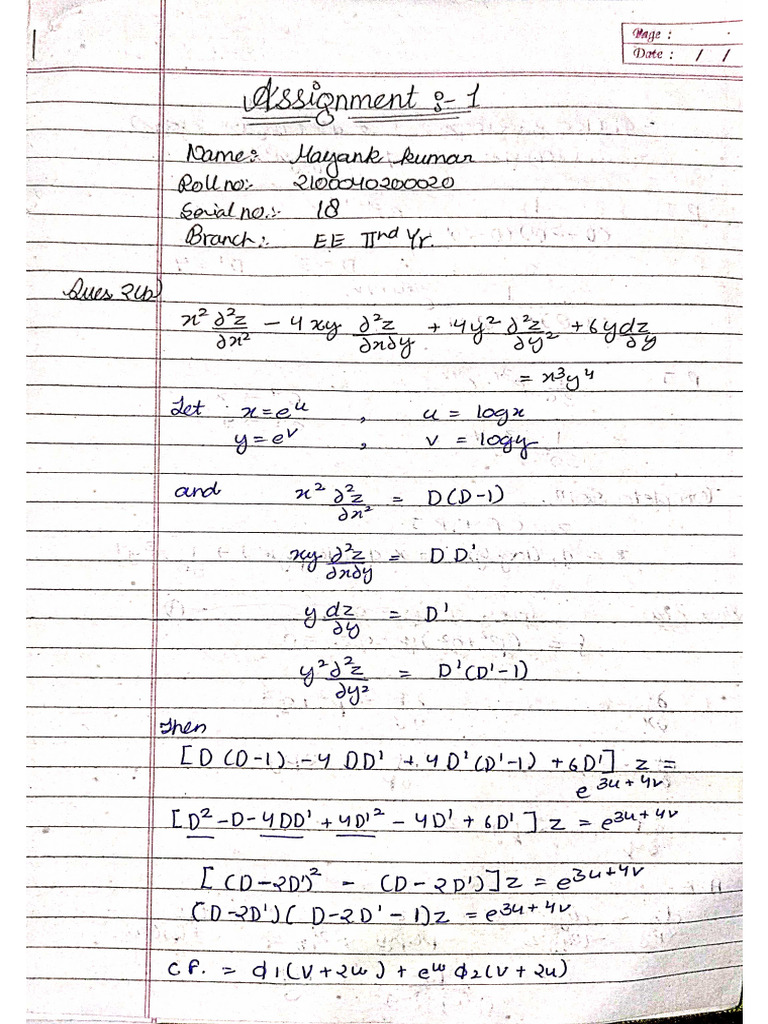 Page :
Date : / /
Assignment :- 1
Name:- Mayank Kumar
Roll no:- 2100040200020
Serial no.:- 18
Branch:- EE IInd Yr.
Ques 2(b)
x² ∂²z/∂x² - 4xy ∂²z/∂x∂y + 4y² ∂²z/∂y² + 6y dz/∂y
= x³y⁴
Let x = e^u , u = logx
y = e^v , v = logy
and x² ∂²z/∂x² = D(D-1)
xy ∂²z/∂x∂y = DD'
y dz/∂y = D'
y² ∂²z/∂y² = D'(D'-1)
Then
[D(D-1) - 4DD' + 4D'(D'-1) + 6D'] z =
e^(3u+4v)
[D² - D - 4DD' + 4D'² - 4D' + 6D'] z = e^(3u+4v)
[(D-2D')² - (D-2D')] z = e^(3u+4v)
(D-2D')(D-2D'-1)z = e^(3u+4v)
C.F. = ϕ1(v+2u) + e^u ϕ2(v+2u)